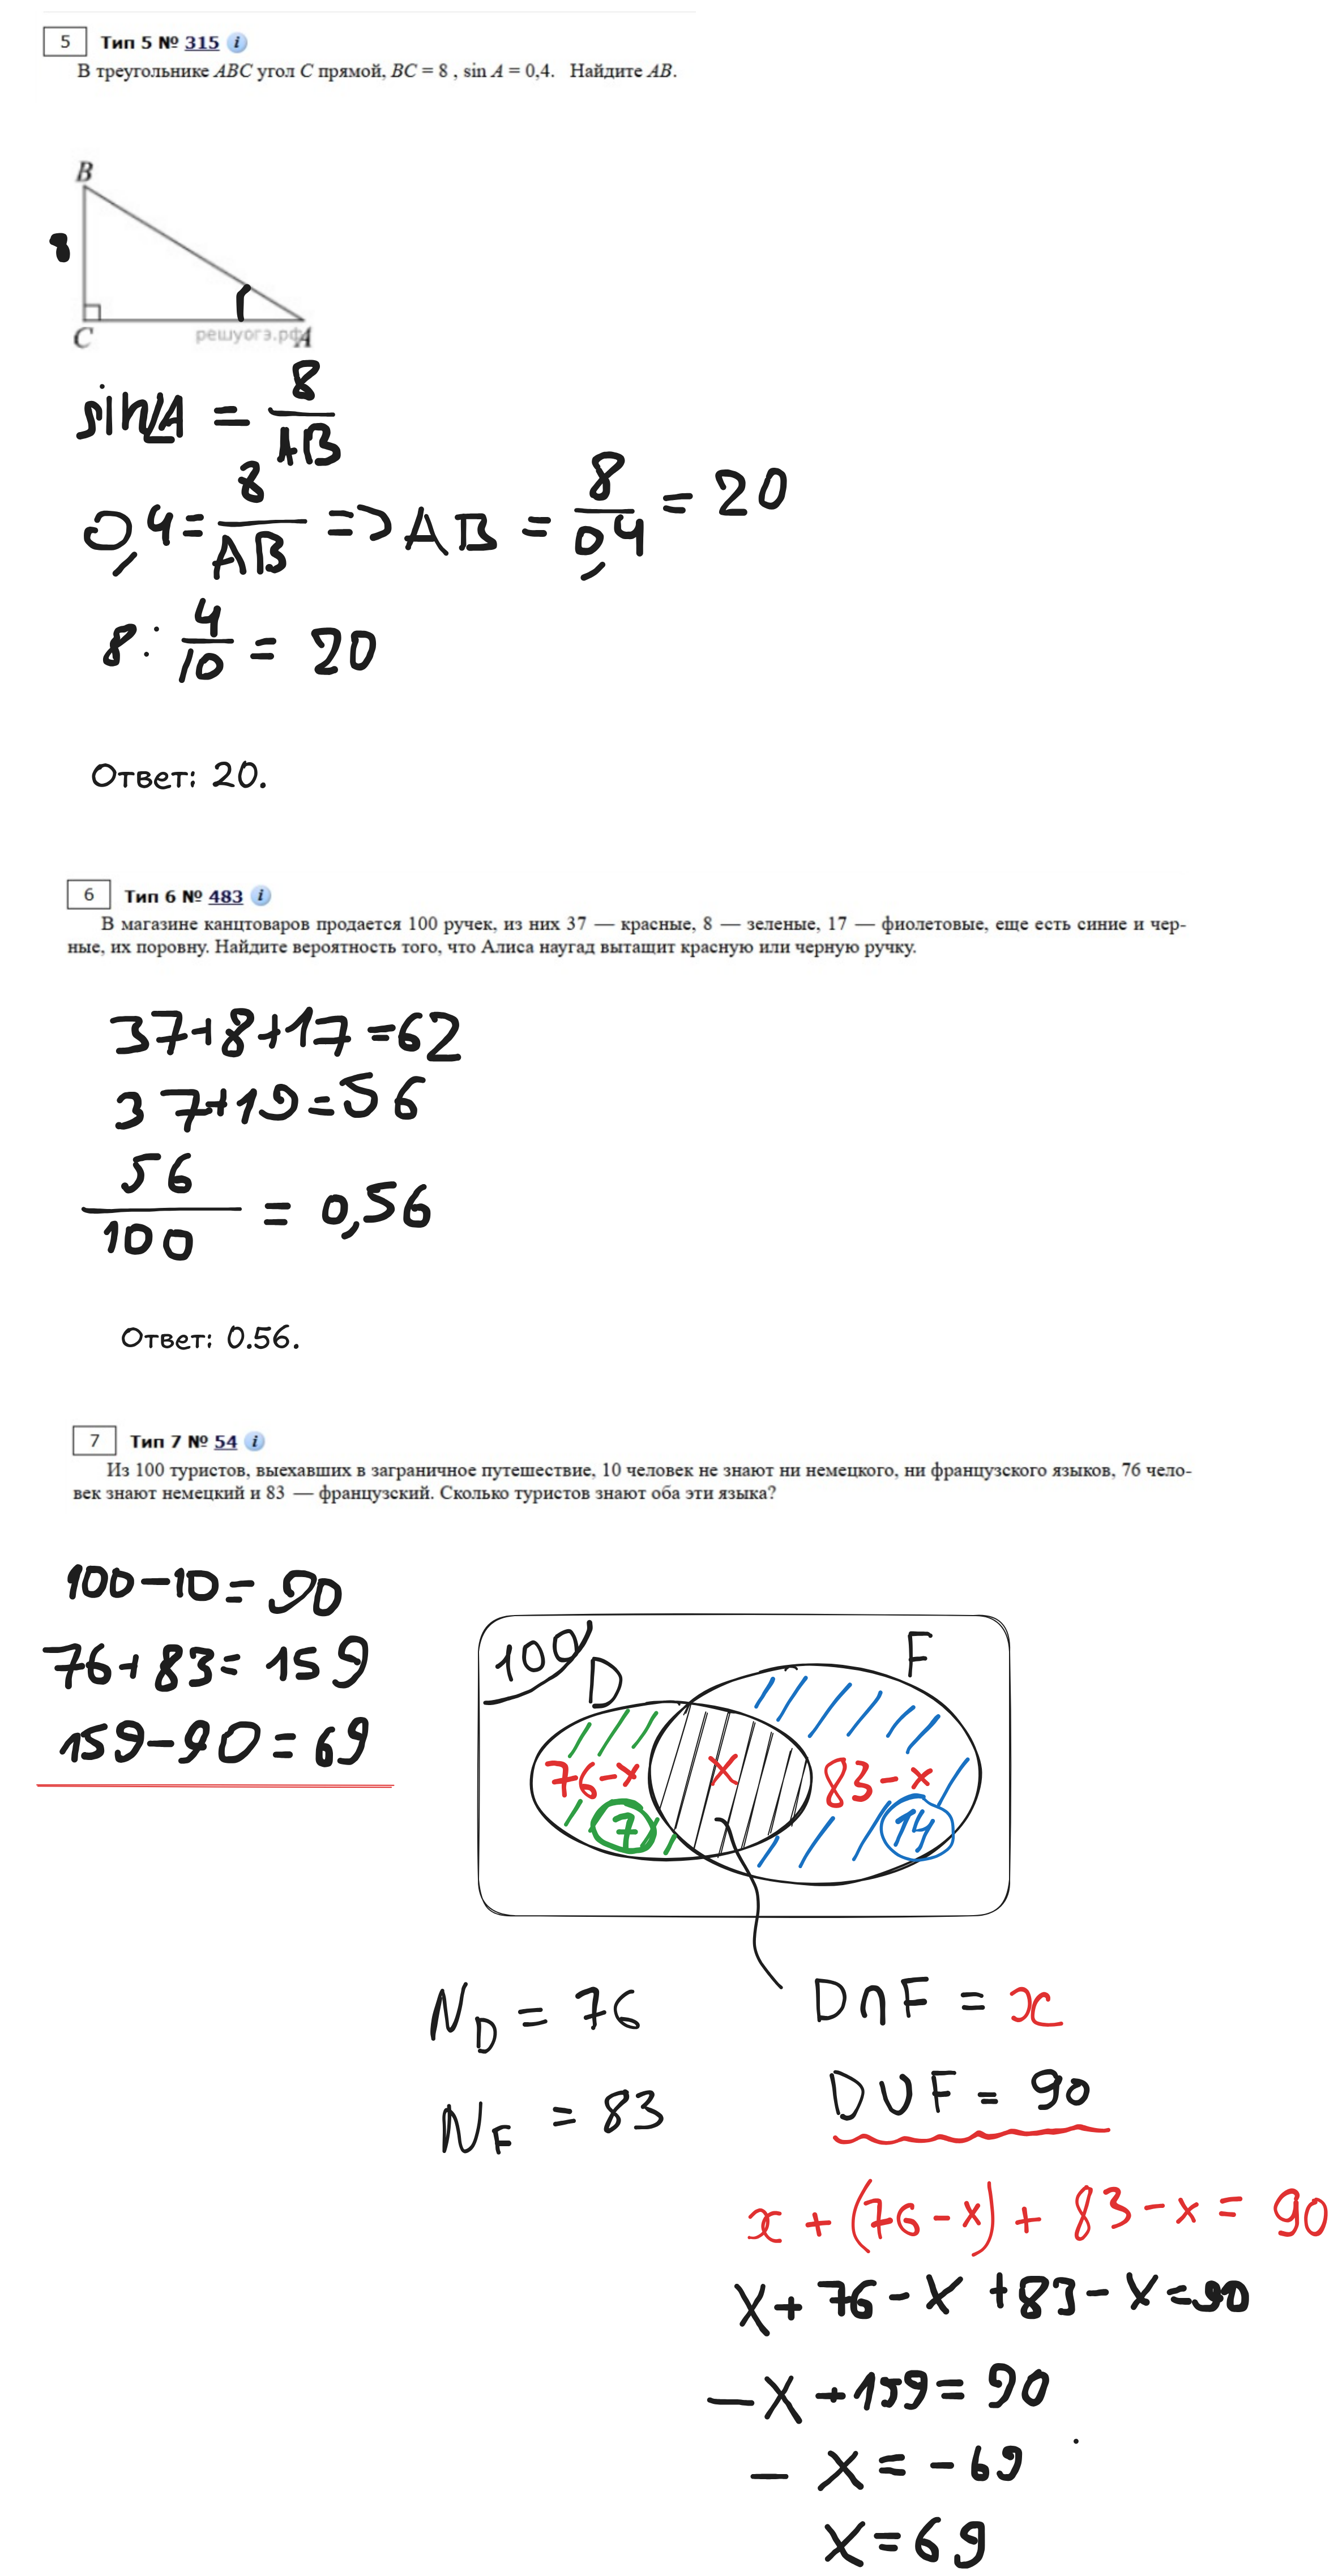 5 Тип 5 № 315 i
В треугольнике ABC угол C прямой, BC = 8 , sin A = 0,4. Найдите AB.
B
8
C
решуогэ.рф
A
sin∠A = 8/AB
0,4 = 8/AB => AB = 8/0,4 = 20
8 : 4/10 = 20
Ответ: 20.
6 Тип 6 № 483 i
В магазине канцтоваров продается 100 ручек, из них 37 — красные, 8 — зеленые, 17 — фиолетовые, еще есть синие и чер-
ные, их поровну. Найдите вероятность того, что Алиса наугад вытащит красную или черную ручку.
37+8+17=62
37+19=56
56/100 = 0,56
Ответ: 0.56.
7 Тип 7 № 54 i
Из 100 туристов, выехавших в заграничное путешествие, 10 человек не знают ни немецкого, ни французского языков, 76 чело-
век знают немецкий и 83 — французский. Сколько туристов знают оба эти языка?
100-10=90
76+83=159
159-90=69
100
D
F
76-x
x
83-x
7
14
N_D = 76
D∩F = x
N_F = 83
D∪F = 90
x + (76-x) + 83-x = 90
x + 76 - x + 83 - x = 90
-x + 159 = 90
- x = -69
x = 69